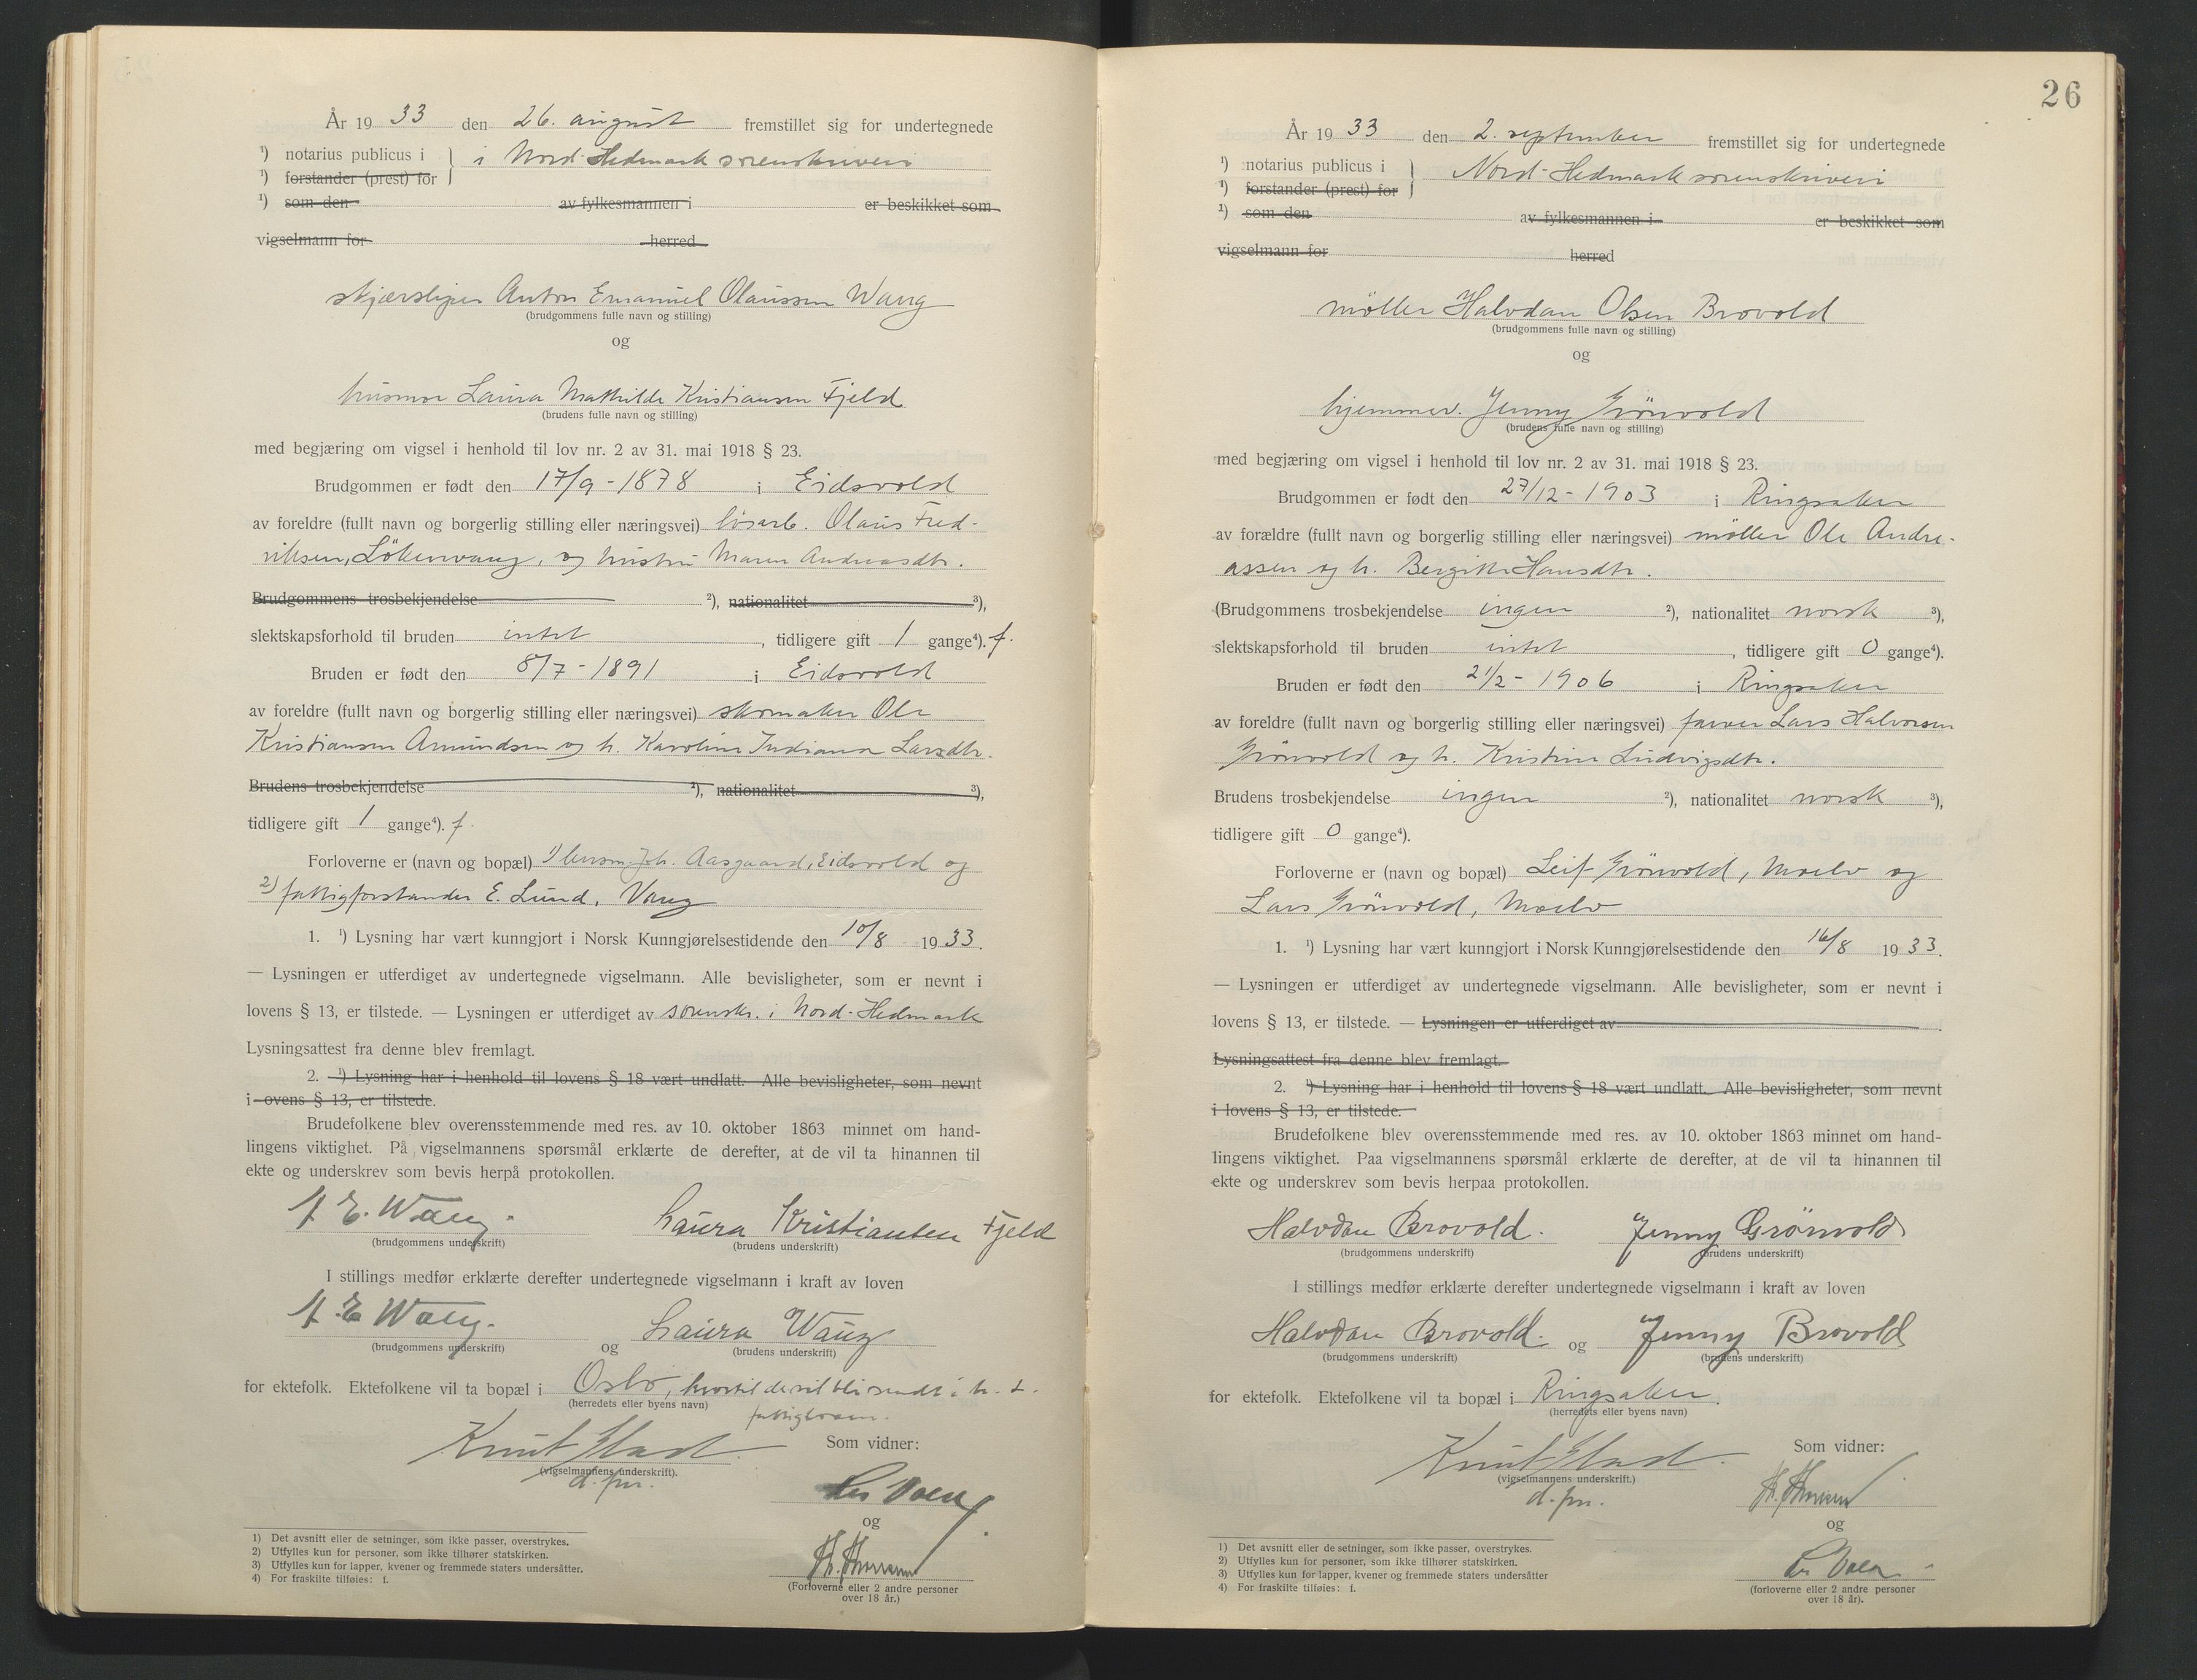 År 1933 den 26. august fremstillet sig for undertegnede
¹) notarius publicus i } i Nord-Hedmark sorenskriveri
¹) forstander (prest) for
¹) som den av fylkesmannen i er beskikket som
vigselmann for herred
skjærsliper Anton Emanuel Olaussen Wang
(brudgommens fulle navn og stilling)
og
husmor Laura Mathilde Kristiansen Fjeld
(brudens fulle navn og stilling)
med begjæring om vigsel i henhold til lov nr. 2 av 31. mai 1918 § 23.
Brudgommen er født den 17/9-1878 i Eidsvold
av foreldre (fullt navn og borgerlig stilling eller næringsvei) løsarb. Olaus Fred-
riksen, Lökenvang, og hustru Maren Andreasdtr.
Brudgommens trosbekjendelse ²), nationalitet ³),
slektskapsforhold til bruden intet, tidligere gift 1 gange⁴). f.
Bruden er født den 8/7-1891 i Eidsvold
av foreldre (fullt navn og borgerlig stilling eller næringsvei) skomaker Ole
Kristiansen Amundsen og h. Karoline Indiana Larsdtr.
Brudens trosbekjendelse ²), nationalitet ³),
tidligere gift 1 gange⁴). f.
Forloverne er (navn og bopæl) 1) Joh. Aasgaard, Eidsvold og
2) fattigforstander E. Lund, Vang
1. ¹) Lysning har vært kunngjort i Norsk Kunngjørelsestidende den 10/8 1933.
— Lysningen er utferdiget av undertegnede vigselmann. Alle bevisligheter, som er nevnt i
lovens § 13, er tilstede. — Lysningen er utferdiget av sorenskr. i Nord-Hedmark
Lysningsattest fra denne blev fremlagt.
2. ¹) Lysning har i henhold til lovens § 18 vært undlatt. Alle bevisligheter, som nevnt
i ovens § 13, er tilstede.
Brudefolkene blev overensstemmende med res. av 10. oktober 1863 minnet om hand-
lingens viktighet. På vigselmannens spørsmål erklærte de derefter, at de vil ta hinannen til
ekte og underskrev som bevis herpå protokollen.
A E. Wang. Laura Kristiansen Fjeld
(brudgommens underskrift) (brudens underskrift)
I stillings medfør erklærte derefter undertegnede vigselmann i kraft av loven
A E Wang. og Laura Wang
(brudgommens underskrift) (brudens underskrift)
for ektefolk. Ektefolkene vil ta bopæl i Oslo, hvortil de vil bli sendt i h. t.
(herredets eller byens navn) fattigloven.
Knut Stad
(vigselmannens underskrift).
d. fm.
Som vidner:
og
(Forloverne eller 2 andre personer
over 18 år.)
1) Det avsnitt eller de setninger, som ikke passer, overstrykes.
2) Utfylles kun for personer, som ikke tilhører statskirken.
3) Utfylles kun for lapper, kvener og fremmede staters undersåtter.
4) For fraskilte tilføies: f.
26
År 1933 den 2. september fremstillet sig for undertegnede
¹) notarius publicus i } Nord-Hedmark sorenskriveri
¹) forstander (prest) for
¹) som den av fylkesmannen i er beskikket som
vigselmann for herred
möller Halvdan Olsen Brovold
(brudgommens fulle navn og stilling)
og
hjemmev. Jenny Grönvold
(brudens fulle navn og stilling)
med begjæring om vigsel i henhold til lov nr. 2 av 31. mai 1918 § 23.
Brudgommen er født den 27/12-1903 i Ringsaker
av forældre (fullt navn og borgerlig stilling eller næringsvei) möller Ole Andre-
assen og h. Bergitte Hansdtr.
(Brudgommens trosbekjendelse ingen ²), nationalitet norsk ³),
slektskapsforhold til bruden intet, tidligere gift 0 gange⁴).
Bruden er født den 21/2-1906 i Ringsaker
av foreldre (fullt navn og borgerlig stilling eller næringsvei) farver Lars Halvorsen
Grönvold og h. Kristine Ludvigsdtr.
Brudens trosbekjendelse ingen ²), nationalitet norsk ³),
tidligere gift 0 gange⁴).
Forloverne er (navn og bopæl) Leif Grönvold, Moelv og
Lars Grönvold, Moelv
1. ¹) Lysning har vært kunngjort i Norsk Kunngjørelsestidende den 16/8 1933.
— Lysningen er utferdiget av undertegnede vigselmann. Alle bevisligheter, som er nevnt i
lovens § 13, er tilstede. — Lysningen er utferdiget av .
Lysningsattest fra denne blev fremlagt.
2. ¹) Lysning har i henhold til lovens § 18 vært undlatt. Alle bevisligheter, som nevnt
i lovens § 13, er tilstede.
Brudefolkene blev overensstemmende med res. av 10. oktober 1863 minnet om hand-
lingens viktighet. Paa vigselmannens spørsmål erklærte de derefter, at de vil ta hinannen til
ekte og underskrev som bevis herpaa protokollen.
Halvdan Brovold. Jenny Grönvold
(brudgommens underskrift) (brudens underskrift)
I stillings medfør erklærte derefter undertegnede vigselmann i kraft av loven
Halvdan Brovold. og Jenny Brovold
(brudgommens underskrift) (brudens underskrift)
for ektefolk. Ektefolkene vil ta bopæl i Ringsaker.
(herredets eller byens navn)
Knut Stad.
(vigselmannens underskrift.)
d. fm.
Som vidner:
og
(forloverne eller 2 andre personer
over 18 år).
1) Det avsnitt eller de setninger, som ikke passer, overstrykes.
2) Utfylles kun for personer, som ikke tilhører statskirken.
3) Utfylles kun for lapper, kvener og fremmede staters undersåtter
4) For fraskilte tilføies: f.